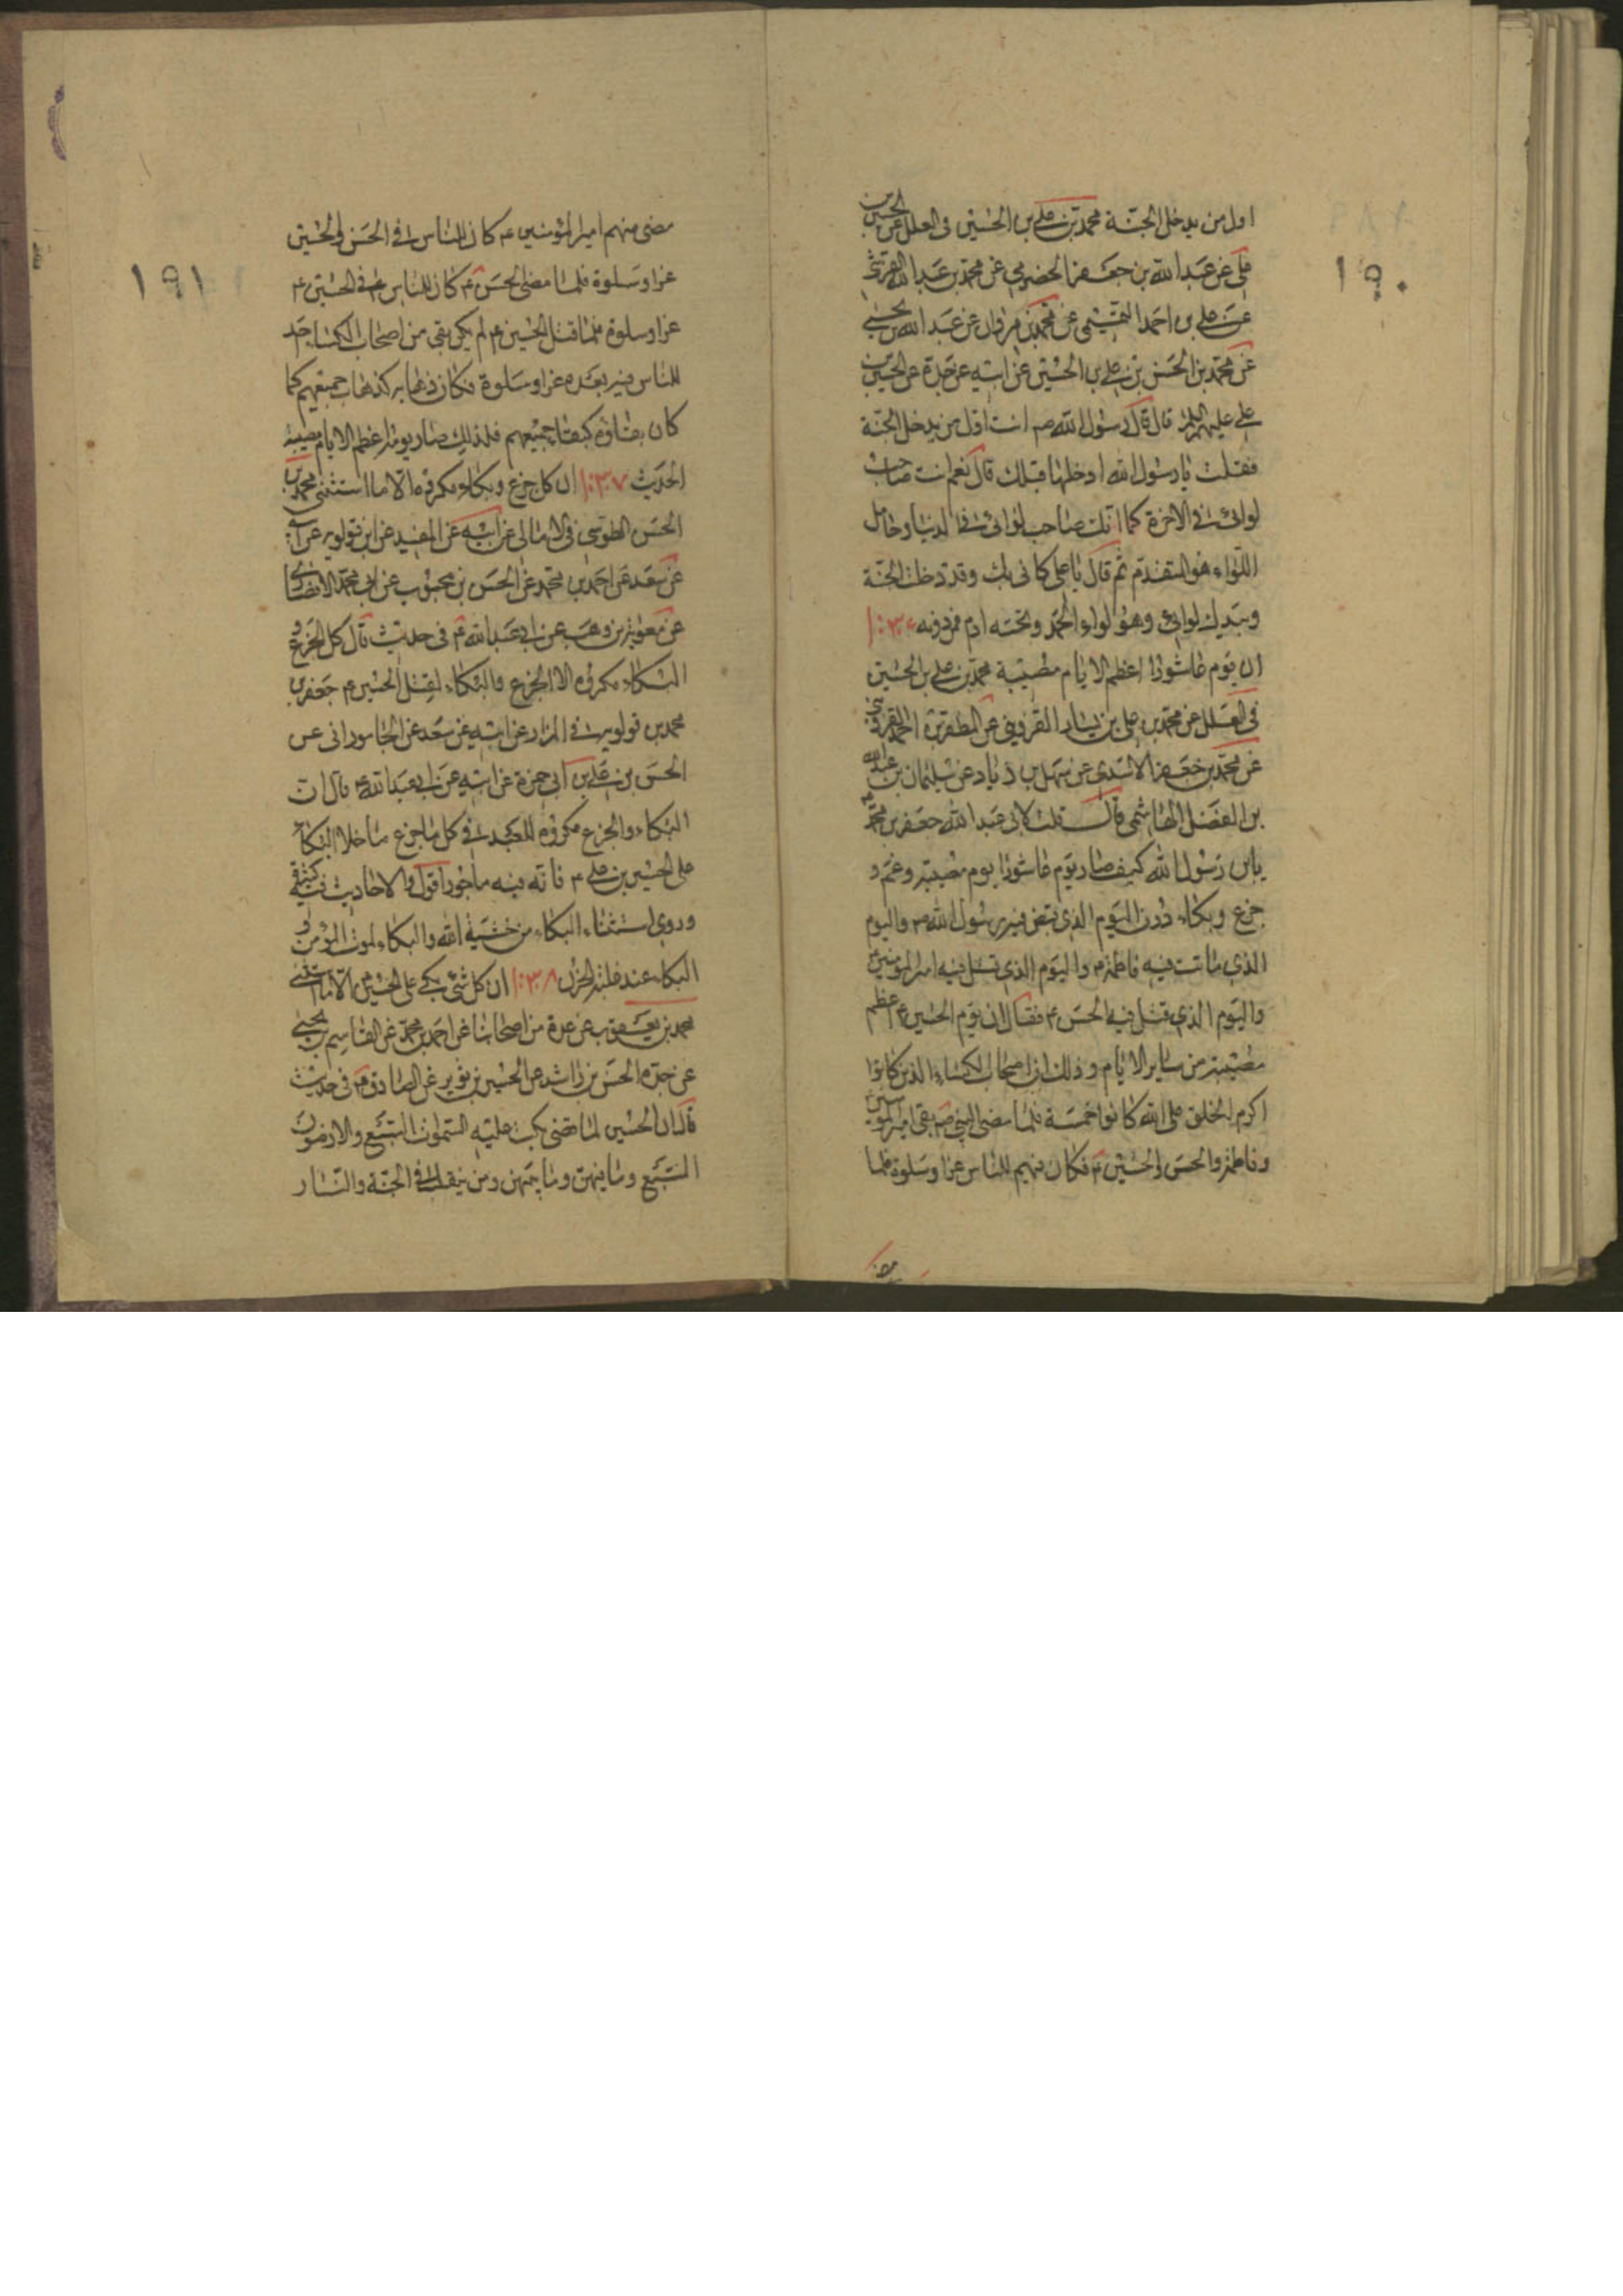 ١٩٠
اول من يدخل الجنة محمد بن علي بن الحسين في العلل عن الحسين بن
علي عن عبد الله بن جعفر الحضرمي عن محمد بن عبد الله القرشي
عن علي بن احمد التميمي عن محمد بن مروان عن عبد الله بن يحيى
عن محمد بن الحسن بن علي بن الحسين عن ابيه عن جده عن الحسين بن
علي عليهم السلم قال قال رسول الله ص انت اول من يدخل الجنة
فقلت يا رسول الله ادخلها قبلك قال نعم انت صاحب
لوائى في الاخرة كما انك صاحب لوائى في الدنيا وحامل
اللواء هو المتقدم ثم قال يا علي كانى بك وقد دخلت الجنة
وبيدك لوائى وهو لواء الحمد وتحته ادم فمن دونه
ان يوم عاشورا اعظم الايام مصيبة محمد بن علي بن الحسين
في العلل عن محمد بن علي بن بشار القزويني عن المظفر بن احمد القزويني
عن محمد بن جعفر الاسدي عن سهل بن زياد عن سليمان بن عبد الله
بن الفضل الهاشمي قال قلت لابى عبد الله جعفر بن محمد ع
يابن رسول الله كيف صار يوم عاشورا يوم مصيبة وغم و
جزع وبكاء دون اليوم الذي قبض فيه رسول الله ص واليوم
الذي ماتت فيه فاطمة ع واليوم الذي قتل فيه امير المؤمنين ع
واليوم الذي قتل فيه الحسن ع فقال ان يوم الحسين ع اعظم
مصيبة من ساير الايام وذلك ان اصحاب الكساء الذين كانوا
اكرم الخلق على الله كانوا خمسة فلما مضى النبي ص بقى امير المؤمنين
وفاطمة والحسن والحسين ع فكان فيهم للناس عزا وسلوة فلما
١٩١
مضى منهم امير المؤمنين ع كان للناس في الحسن والحسين
عزا وسلوة فلما مضى الحسن ع كان للناس في الحسين ع
عزا وسلوة فلما قتل الحسين ع لم يكن بقى من اصحاب الكسا احد
للناس فيه بعده عزا وسلوة فكان ذهابه كذهاب جميعهم كما
كان بقاؤه كبقا جميعهم فلذلك صار يومه اعظم الايام مصيبة
الحديث ١٠٣٧ ان كل جزع وبكاء مكروه الا ما استثنى محمد بن
الحسن الطوسي في الامالى عن ابيه عن المفيد عن ابن قولويه عن ابيه
عن سعد عن احمد بن محمد عن الحسن بن محبوب عن ابى محمد الانصاري
عن معوية بن وهب عن ابى عبد الله ع في حديث قال كل الجزع و
البكاء مكروه الا الجزع والبكاء لقتل الحسين ع جعفر بن
محمد بن قولويه في المزار عن ابيه عن سعد عن الجاموراني عن
الحسن بن علي بن ابى حمزة عن ابيه عن ابى عبد الله ع قال ان
البكاء والجزع مكروه للعبد في كل ما جزع ما خلا البكاء
على الحسين بن علي ع فانه فيه ماجور اقول والاحاديث فيه كثيرة
وروى استثناء البكاء من خشية الله والبكاء لموت المؤمن و
البكاء عند غلبة الحزن ١٠٣٨ ان كل شئ بكى على الحسين ع الا ما استثنى
محمد بن يعقوب عن عدة من اصحابنا عن احمد بن محمد عن القاسم بن يحيى
عن جده الحسن بن راشد عن الحسين بن ثوير عن الصادق ع في حديث
قال ان الحسين لما قضى بكت عليه السموات السبع والارضون
السبع وما فيهن وما بينهن ومن ينقلب في الجنة والنار